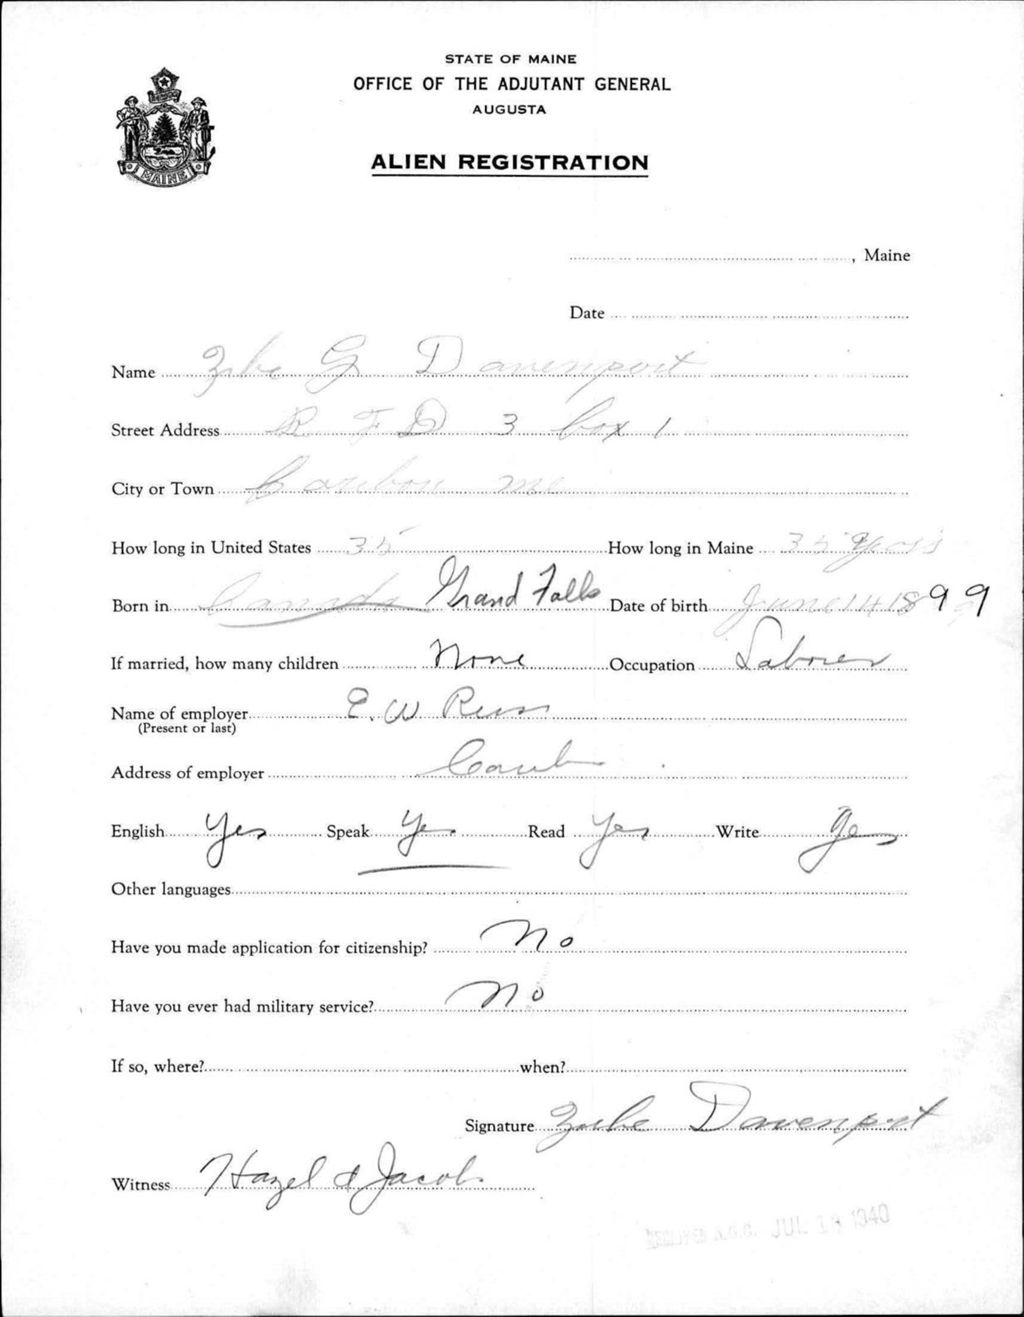 STATE OF MAINE
OFFICE OF THE ADJUTANT GENERAL
AUGUSTA
ALIEN REGISTRATION
MAINE
, Maine
Date
Name G Davenport
Street Address R F D 3 box 1
City or Town Caribou Me
How long in United States 35 How long in Maine 35 years
Born in Canada Grand Falls Date of birth June 14 1899
If married, how many children None Occupation Laborer
Name of employer E. W
(Present or last)
Address of employer Carib
English Yes Speak Yes Read Yes Write Yes
Other languages
Have you made application for citizenship? No
Have you ever had military service? No
If so, where? when?
Signature Davenport
Witness Hazel Jacob
RECEIVED A.G.O. JUL 1940